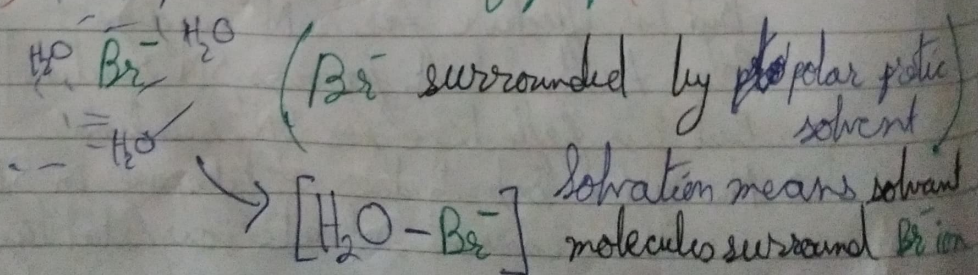 H₂O Br⁻ H₂O (Br⁻ surrounded by polar protic
solvent)
H₂O
Solvation means solvant
[H₂O – Br⁻] molecules surround Br⁻ ion